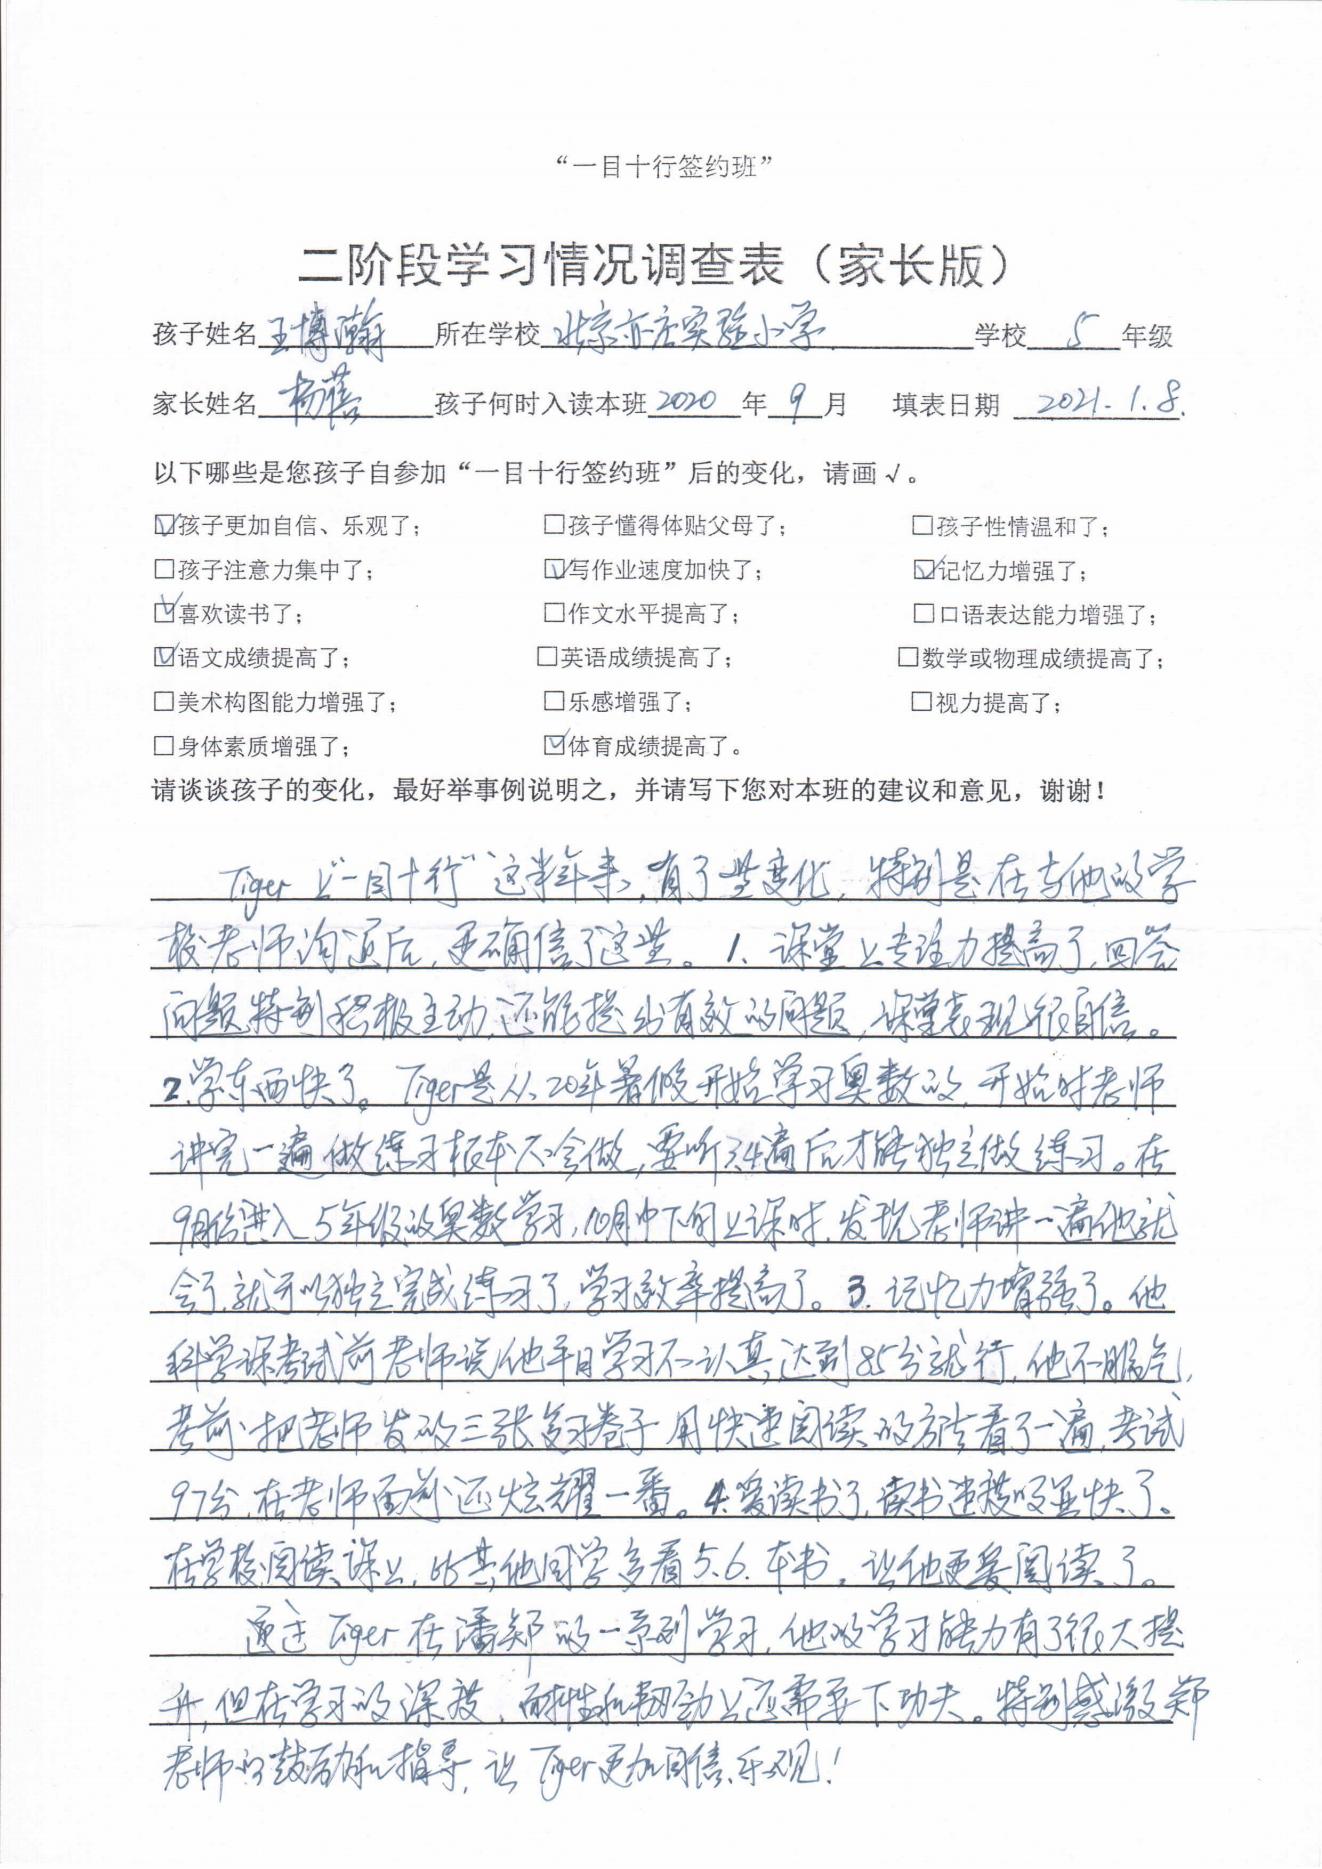 “一目十行签约班”
二阶段学习情况调查表（家长版）
孩子姓名 王博瀚 所在学校 北京亦庄实验小学 学校 5 年级
家长姓名 杨 孩子何时入读本班 2020 年 9 月 填表日期 2021.1.8.
以下哪些是您孩子自参加“一目十行签约班”后的变化，请画√。
☑孩子更加自信、乐观了； □孩子懂得体贴父母了； □孩子性情温和了；
□孩子注意力集中了； ☑写作业速度加快了； ☑记忆力增强了；
☑喜欢读书了； □作文水平提高了； □口语表达能力增强了；
☑语文成绩提高了； □英语成绩提高了； □数学或物理成绩提高了；
□美术构图能力增强了； □乐感增强了； □视力提高了；
□身体素质增强了； ☑体育成绩提高了。
请谈谈孩子的变化，最好举事例说明之，并请写下您对本班的建议和意见，谢谢！
Tiger 上“一目十行”这半年来，有了些变化，特别是在与他的学
校老师沟通后，更确信了这些。1. 课堂上专注力提高了，回答
问题特别积极主动，还能提出有效的问题，课堂表现很自信。
2.学东西快了。Tiger是从20年暑假开始学习奥数的，开始时老师
讲完一遍做练习根本不会做，要听3.4遍后才能独立做练习。在
9月份进入5年级的奥数学习，10月中下旬上课时，发现老师讲一遍他就
会了，就可以独立完成练习了，学习效率提高了。3. 记忆力增强了。他
科学课考试前老师说他平日学习不认真，达到85分就行，他不服气，
考前把老师发的三张复习卷子用快速阅读的方法看了一遍，考试
97分，在老师面前还炫耀一番。4.爱读书了，读书速度明显快了。
在学校阅读课上，比其他同学多看5.6.本书，让他更爱阅读了。
通过Tiger在潘郑的一系列学习，他的学习能力有了很大提
升，但在学习的深度，耐性和韧劲上还需要下功夫。特别感激郑
老师的鼓励和指导，让Tiger更加自信、乐观！